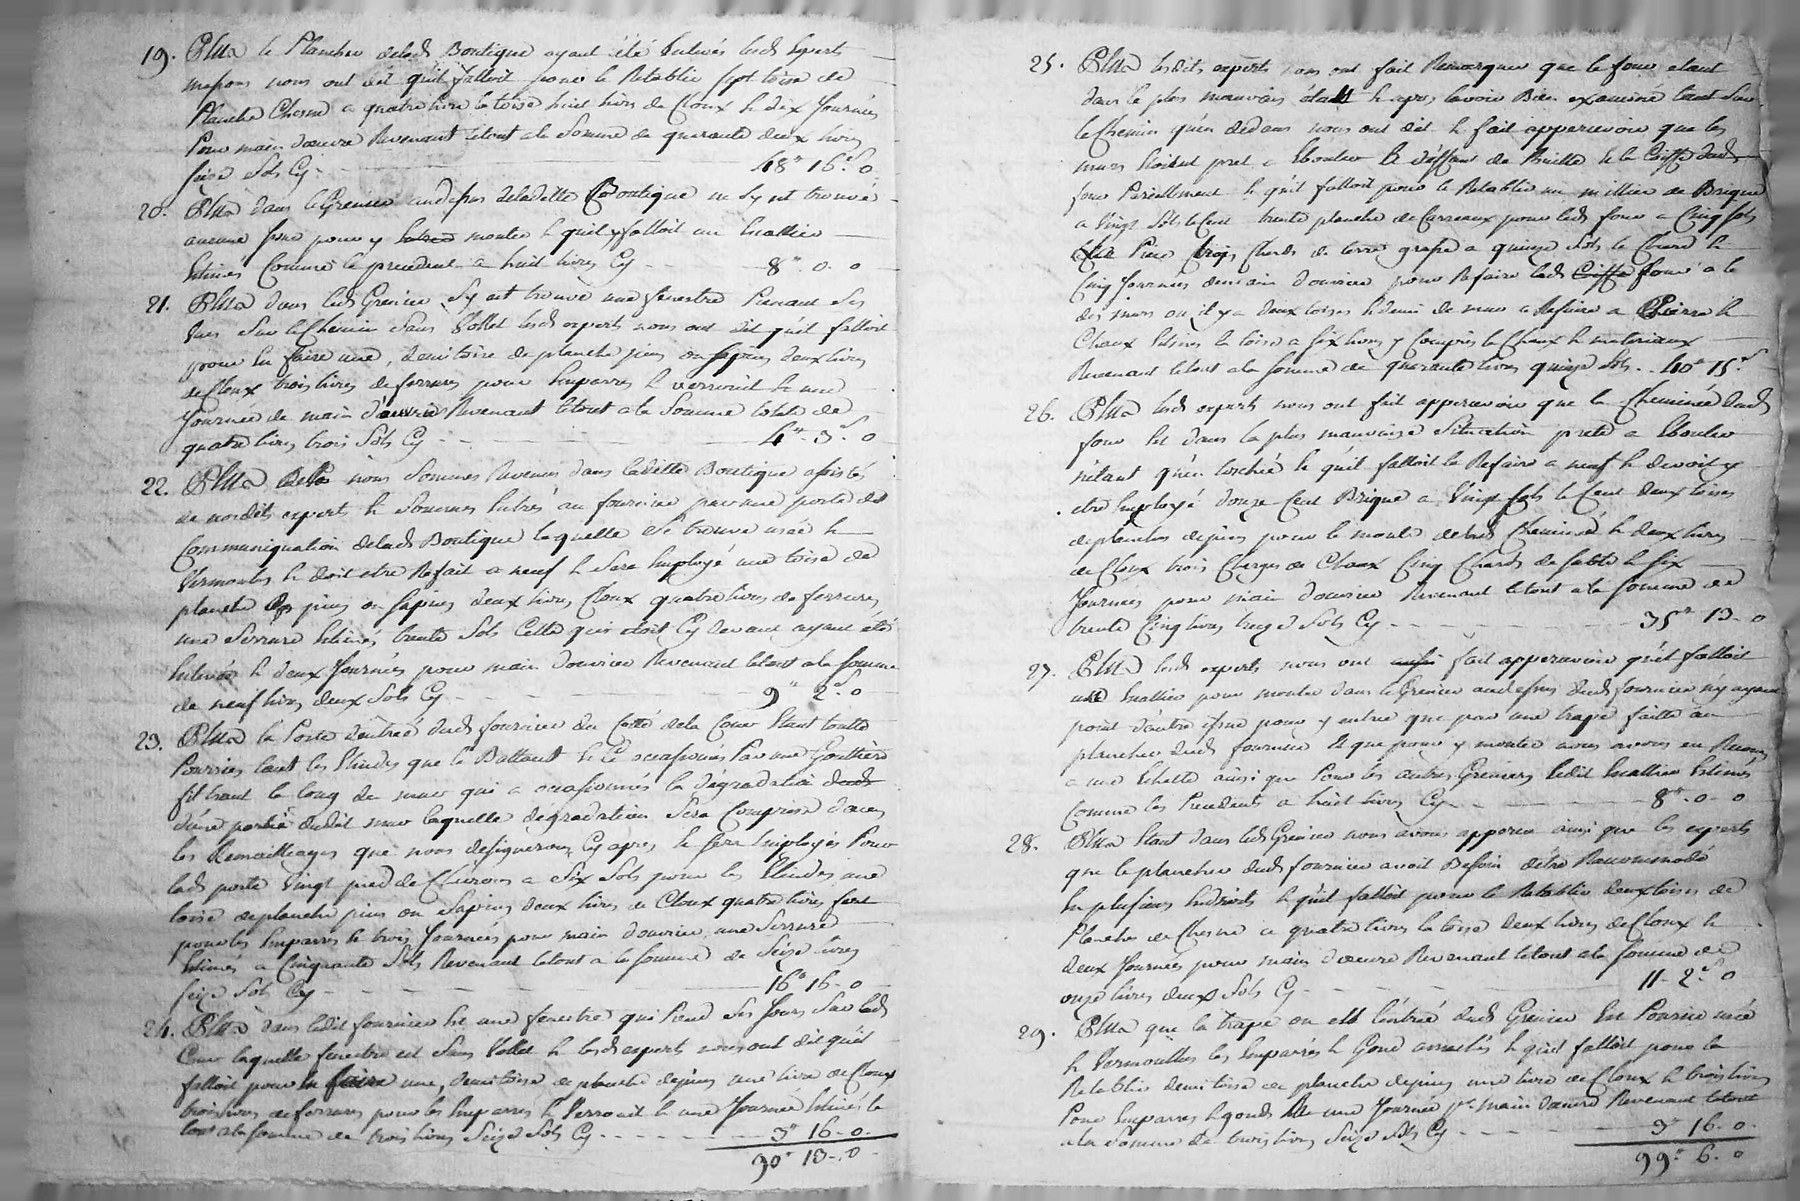 19. Plus le Plancher de lad. Boutique ayant été enlevés lesd. experts
maçons nous ont dit qu'il falloit pour le Rétablir sept toise de
Planche Chesne a quatre livre la toise huit livres de Cloux & dix Journées
Pour main d'oeuvre Revenant letout a la Somme de quarante deux livres
seize Sols Cy 48" 16.s 0
20. Plus dans le Grenier audessus deladitte Boutique ne Sy est trouvé
aucune pour y monter & qu'il y falloit un Escallier
Estimés Comme le precedent a huit livres Cy 8" 0. 0
21. Plus dans led. Grenier Sy est trouvé une fenestre Prenant Ses
Vues Sur le Chemin Sans Vollet lesd. experts nous ont dit qu'il falloit
pour en faire une, demi toise de planche pins ou sapins, deux livres
de Cloux trois livres de ferrures pour Emparres & verrouil & une
Journée de main d'ouvrier Revenant letout a la Somme totale de
quatre livres trois Sols Cy 4" 3.s 0
22. Plus nous Sommes Revenus dans laditte Boutique assistés
de nosdits experts & Sommes Entrés au fournier par une porte de
Communiquation delad. Boutique laquelle Se trouve usée &
Vermoulue & doit etre Refait a neuf & Sera Employé une toise de
planche pins ou sapins deux livres Cloux quatre livres de ferrures,
une Serrure Estimés trente Sols Celle qui etoit Cy devant ayant été
Enlevée & deux Journées pour main d'ouvrier Revenant letout a la Somme
de neuf livres deux Sols Cy 9" 2.s 0
23. Plus la Porte d'entrée dud. fournier du Cotté de la Cour Etant toutte
Pourries tant les Etendes que le Battant & occasionnés Par une Gouttiere
le long du mur qui a occasionnés la dégradation
d'une partie dudit mur laquelle dégradation Sera Comprise dans
les Remaillages que nous designerons Cy apres & sera Employés Pour
lad. porte Vingt pied de Chevrons a Six Sols pour les Etendes, une
toise de planche pins ou Sapins, deux livres de Cloux quatre livres fert
pour les Emparres & trois Journées pour main d'ouvrier, une Serrure
Estimés a Cinquante Sols Revenant letout a la Somme de Seize livres
seize Sols Cy 16" 16 - 0
24. Plus dans ledit fournier Est une fenestre qui Prend Ses Jours Sur lad.
Cour laquelle fenestre est Sans Vollet & lesd. experts nous ont dit qu'il
falloit pour en faire une, demi toise de planche de pins une livre de Cloux
trois livres de ferrures pour les Emparres & Verrouil & une Journée Estimés le
tout a la Somme de trois livres Seize Sols Cy 3" 16 - 0
90" 13 - 0
25. Plus lesdits experts nous ont fait Remarquer que le four etant
dans le plus mauvais état & apres lavoir Bien examiné tant Sur
le Chemin qu'en dedans nous ont dit & fait appercevoir que les
murs Etoient pret a Ebouler de & la Coiffe dud.
four Pareillement & qu'il falloit pour le Rétablir un millier de Brique
a Vingt Sols le Cent trente planche de Carreaux pour led. four a Cinq Sols
Piece trois Chards de terre grasse a quinze Sols le Chard &
Cinq Journées de main d'ouvrier pour Refaire led. Coiffe four a le
des murs ou il y a deux toises & demi de mur a Refaire a Pierre &
Chaux Estimés la toise a six livres y Compris la Chaux & materiaux
Revenant letout a la Somme de quarante livres quinze Sols .. 40" 15.s
26. Plus lesd. experts nous ont fait appercevoir que la Cheminée dud.
four Est dans la plus mauvaise Situation prete a Ebouler
n'étant qu'en torchie & qu'il falloit la Refaire a neuf & devoit y
etre Employé douze Cent Brique a Vingt Sols le Cent deux toises
de planches de pins pour le monte de lad. Cheminée & deux livres
de Cloux trois Charges de Chaux Cinq Chards de sable & Six
Journées pour main d'ouvrier Revenant letout a la Somme de
trente Cinq livres treize Sols Cy 35" 13 - 0
27. Plus lesd. experts nous ont fait appercevoir qu'il falloit
une Escallier pour monter dans le Grenier audessus dud. fournier n'y ayant
point d'autre issue pour y entrer que par une trape faitte au
plancher dud. fournier & que pour y monter nous avons eu Recours
a une Echelle ainsi que Pour les autres Greniers ledit Escallier Estimés
Comme les Precedents a huit livres Cy 8" 0 - 0
28. Plus Etant dans led. Grenier nous avons apperçu ainsi que les experts
que le plancher dud. fournier avoit Besoin d'etre Raccommodé
En plusieurs Endroits & qu'il falloit pour le Rétablir deux toises de
Planches de Chesne a quatre livres la toise deux livres de Cloux &
deux Journées pour main d'oeuvre Revenant letout a la Somme de
onze livres deux Sols Cy 11 - 2.s 0
29. Plus que la trape ou est l'entrée dud. Grenier Est Pourrie usée
& Vermoullue les Emparres & Gond arrachés & qu'il falloit pour la
Rétablir demi toise de planche de pins une livre de Cloux & trois livres
Pour Emparres & gonds & une Journée pr. main d'oeuvre Revenant letout
a la Somme de trois livres Seize Sols Cy 3" 16 - 0
99" 6 - 0